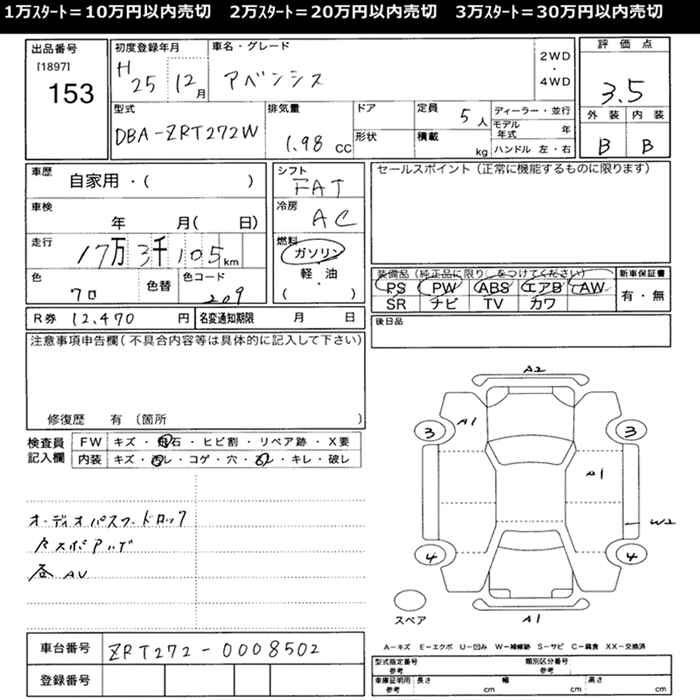 1万ｽﾀｰﾄ＝10万円以内売切　2万ｽﾀｰﾄ＝20万円以内売切　3万ｽﾀｰﾄ＝30万円以内売切
出品番号
[1897]
153
初度登録年月
H 25 12月
車名・グレード
アベンシス
2WD
・
4WD
評価点
3.5
外装 内装
B B
型式
DBA-ZRT272W
排気量
1.98 CC
ドア
形状
定員 5人
積載 kg
ディーラー・並行
モデル年式 年
ハンドル 左・右
車歴 自家用・( )
車検 年 月( 日)
走行 17万3千105km
色 クロ 色替 色コード 209
シフト FAT
冷房 AC
燃料
ガソリン
軽・油
( )
セールスポイント（正常に機能するものに限ります）
装備品（純正品に限り○をつけてください）
PS PW ABS エアB AW
SR ナビ TV カワ
新車保証書
有・無
後日品
R券 12,470 円 名変通知期限 月 日
注意事項申告欄(不具合内容等は具体的に記入して下さい)
修復歴 有 〔箇所 〕
検査員
記入欄
FW キズ・飛石・ヒビ割・リペア跡・X要
内装 キズ・汚レ・コゲ・穴・スレ・キレ・破レ
A2
A1
3 3
A1
W2
4 4
スペア
A1
A-キズ E-エクボ U-凹み W-補修跡 S-サビ C-腐食 XX-交換済
車台番号 ZRT272-0008502
登録番号
型式指定番号 参考
類別区分番号 参考
車庫証明用参考 長さ cm 幅 cm 高さ cm